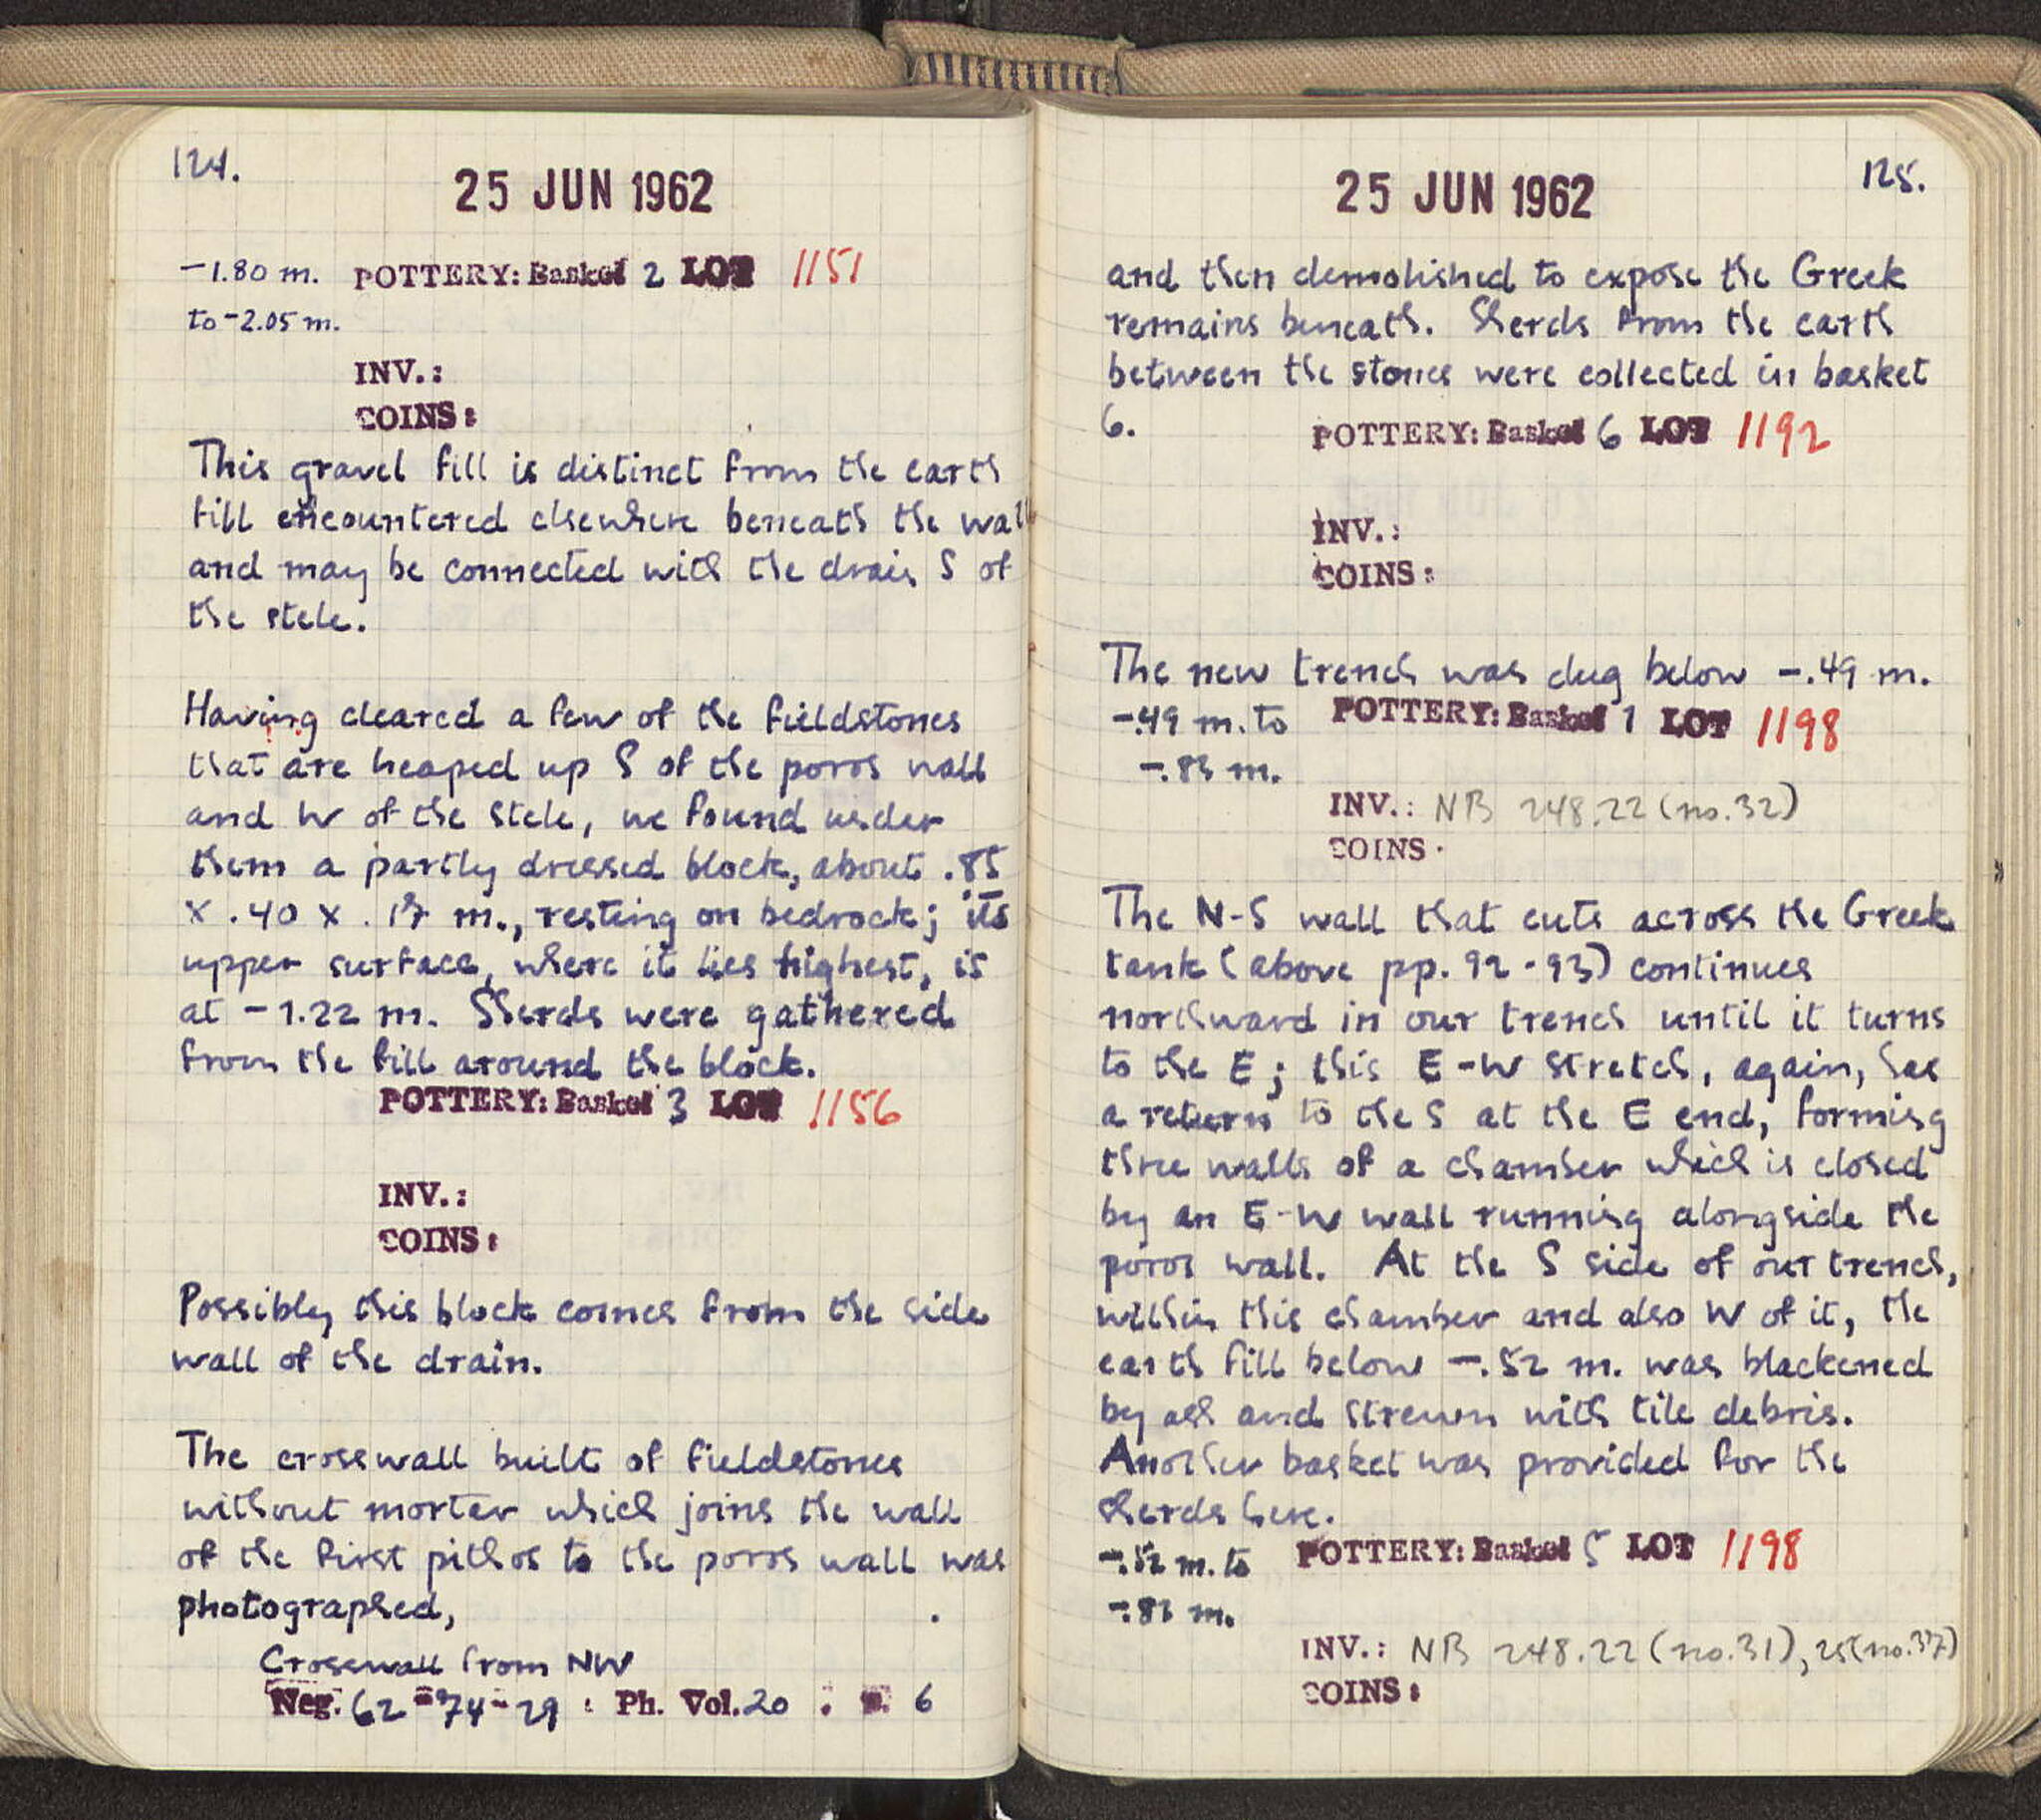 124.
25 JUN 1962
-1.80 m. POTTERY: Basket 2 LOT 1151
to -2.05 m.
INV.:
COINS:
This gravel fill is distinct from the earth
fill encountered elsewhere beneath the wall
and may be connected with the drain S of
the stele.
Having cleared a few of the fieldstones
that are heaped up S of the poros wall
and W of the stele, we found under
them a partly dressed block, about .85
x .40 x .17 m., resting on bedrock; its
upper surface, where it lies highest, is
at -1.22 m. Sherds were gathered
from the fill around the block.
POTTERY: Basket 3 LOT 1156
INV.:
COINS:
Possibly this block comes from the side
wall of the drain.
The crosswall built of fieldstones
without mortar which joins the wall
of the first pithos to the poros wall was
photographed,
Crosswall from NW
Neg. 62-74-29 : Ph. Vol. 20 : p. 6
25 JUN 1962
125.
and then demolished to expose the Greek
remains beneath. Sherds from the earth
between the stones were collected in basket
6. POTTERY: Basket 6 LOT 1192
INV.:
COINS:
The new trench was dug below -.49 m.
-.49 m. to POTTERY: Basket 1 LOT 1198
-.83 m.
INV.: NB 248.22 (no. 32)
COINS:
The N-S wall that cuts across the Greek
tank (above pp. 92-93) continues
northward in our trench until it turns
to the E; this E-W stretch, again, has
a return to the S at the E end, forming
three walls of a chamber which is closed
by an E-W wall running alongside the
poros wall. At the S side of our trench,
within this chamber and also W of it, the
earth fill below -.52 m. was blackened
by ash and strewn with tile debris.
Another basket was provided for the
sherds here.
-.52 m. to POTTERY: Basket 5 LOT 1198
-.83 m.
INV.: NB 248.22 (no. 31), 25 (no. 37)
COINS: